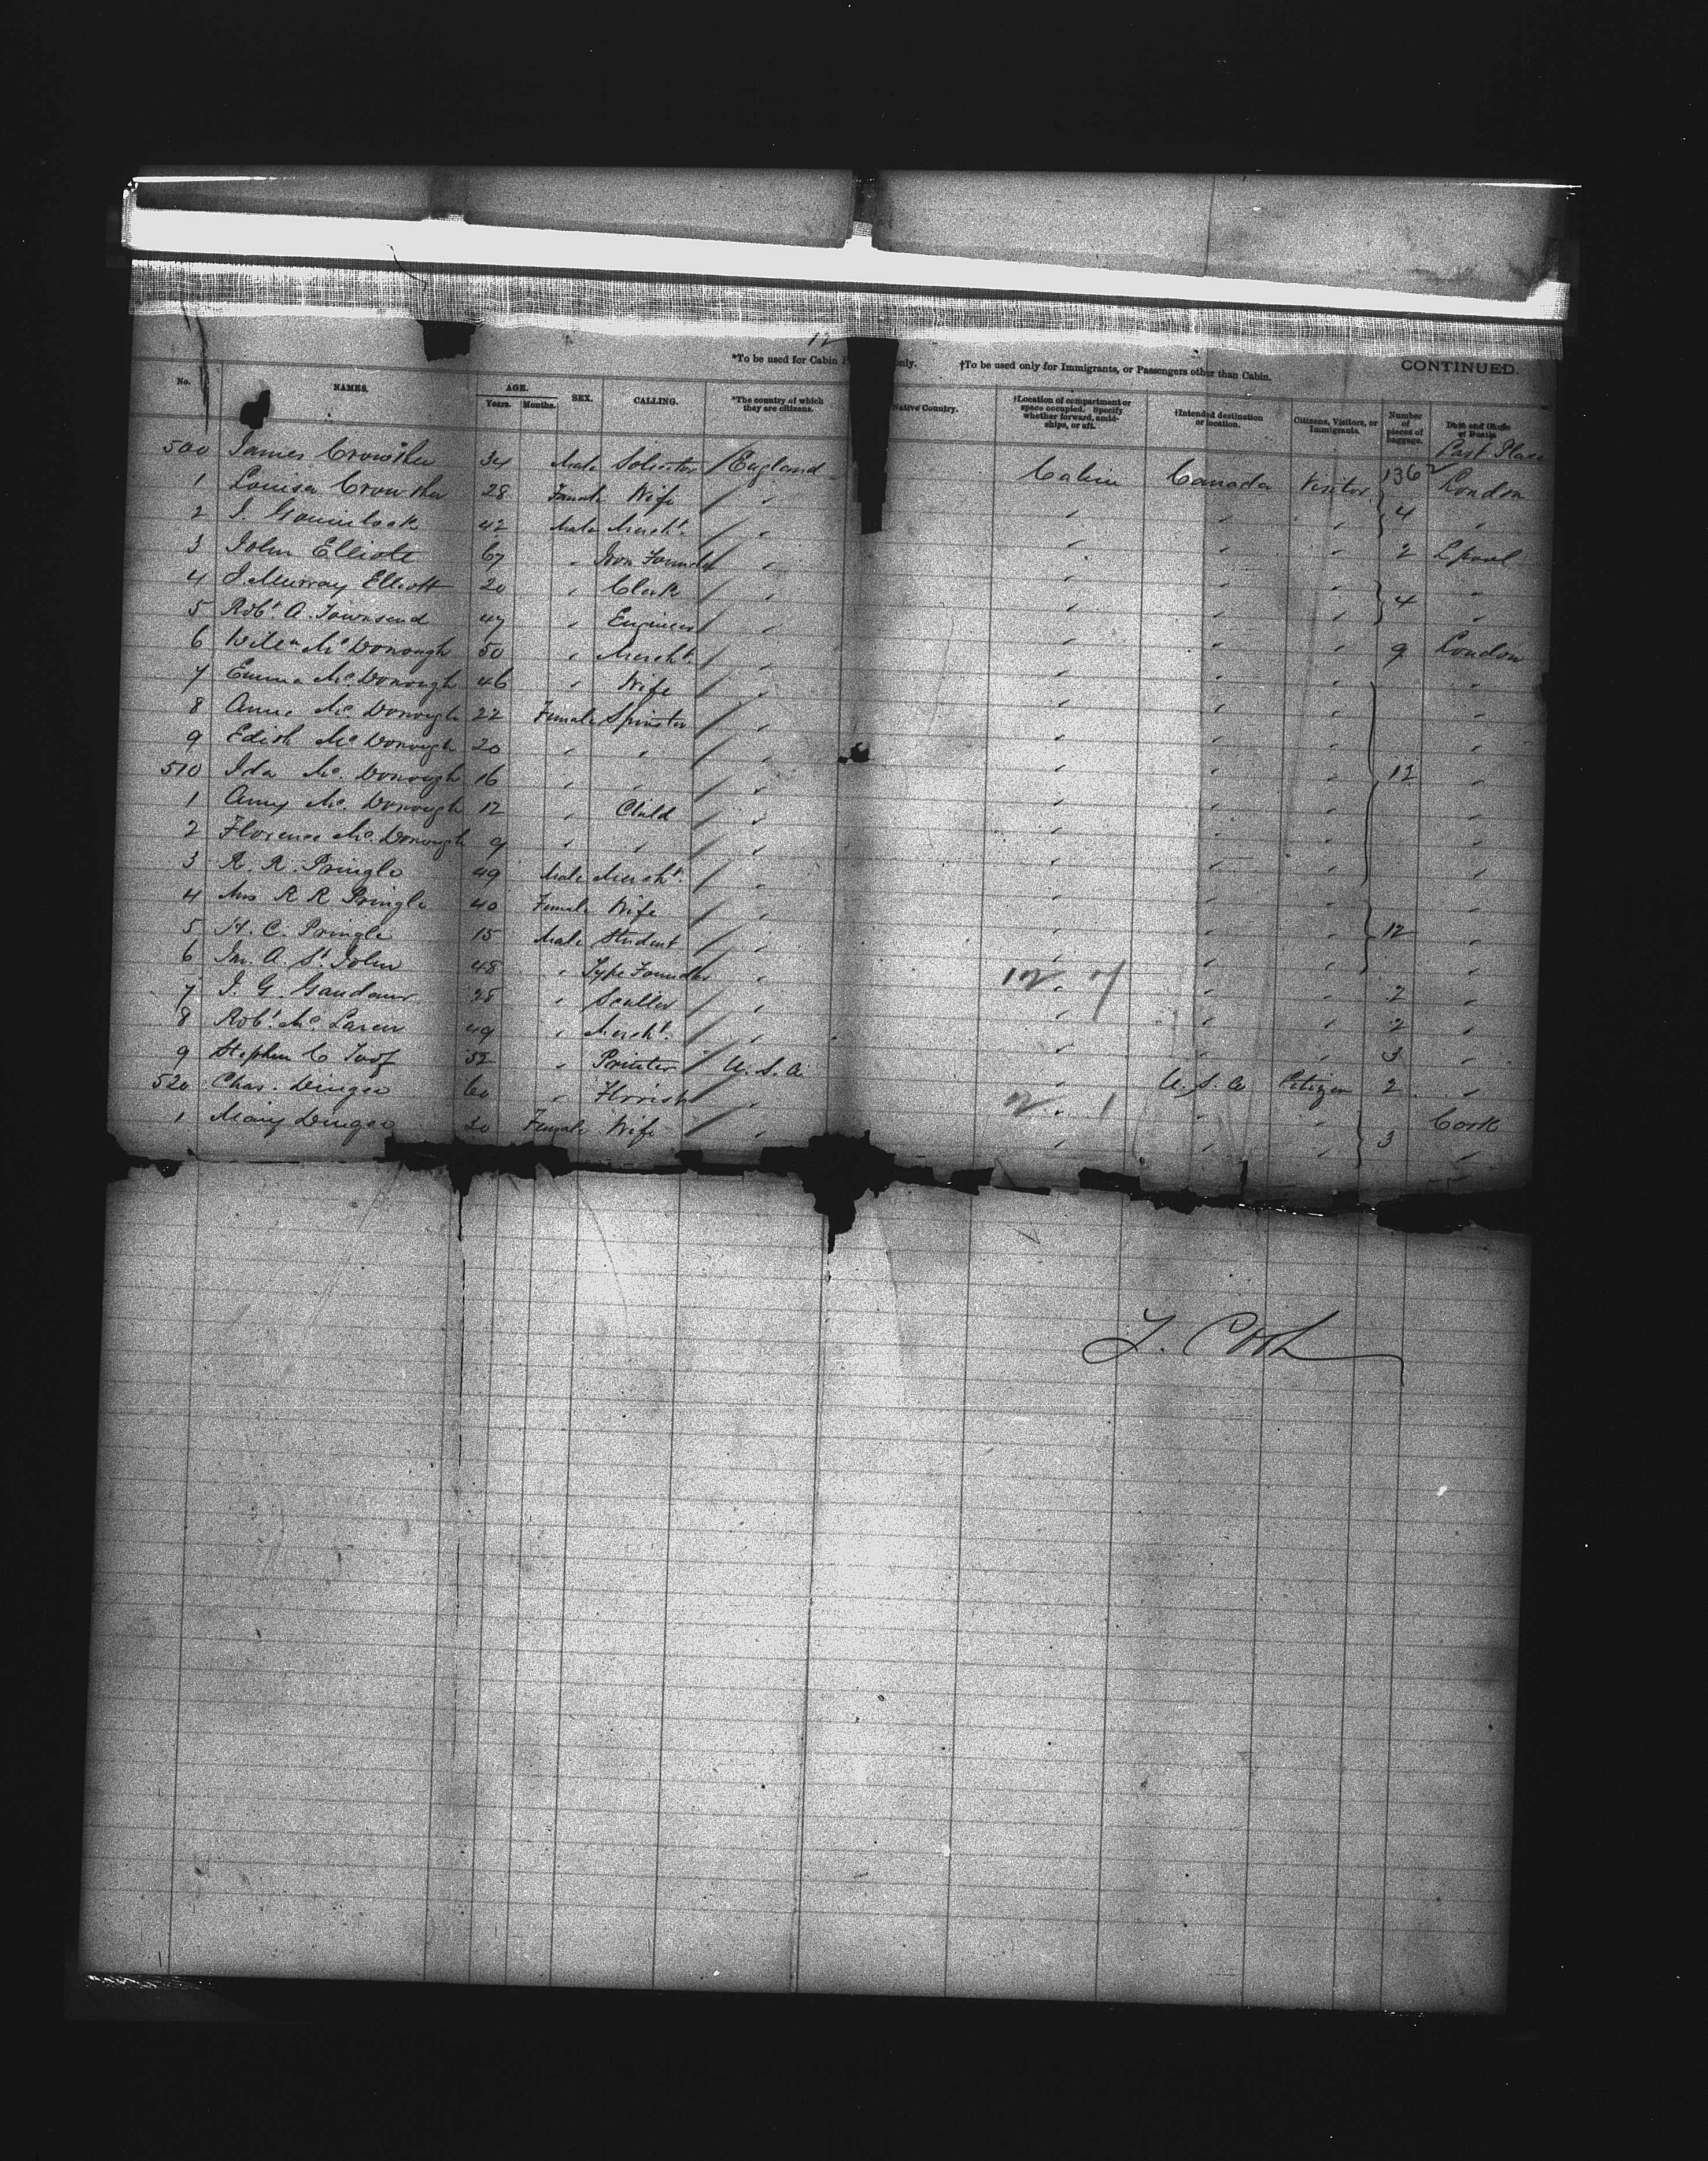 12
*To be used for Cabin only. †To be used only for Immigrants, or Passengers other than Cabin. CONTINUED.
No. NAMES. AGE. Years. Months. SEX. CALLING. *The country of which they are citizens. Native Country. †Location of compartment or space occupied. Specify whether forward, amidships, or aft. †Intended destination or location. Citizens, Visitors, or Immigrants. Number of pieces of baggage. Date and Cause of Death.
Last Place
500 James Crowther 34 Male Solicitor / England Cabin Canada Visitor 136 London
1 Louisa Crowther 28 Female Wife / " " " " 4 "
2 J. 42 Male Mercht. / " " " " 2 Lpool
3 John Elliott 67 " Iron Founder / " " " " "
4 J. Murray Elliott 20 " Clerk / " " " " 4 "
5 Robt. A. Townsend 47 " Engineer / " " " " 9 London
6 Willm McDonough 50 " Mercht. / " " " " "
7 Emma McDonough 46 " Wife / " " " " "
8 Annie McDonough 22 Female Spinster / " " " " "
9 Edith McDonough 20 " " / " " " " 12 "
510 Ida McDonough 16 " " / " " " " "
1 Amy McDonough 12 " Child / " " " " "
2 Florence McDonough 9 " " / " " " " "
3 R. R. Pringle 49 Male Mercht. / " " " " "
4 Mrs R R Pringle 40 Female Wife / " " " " 12 "
5 H. C. Pringle 15 Male Student / " " " " "
6 A. St. John 48 " Type Founder " 12 " 7 " " 2 "
7 J. G. Gaudaur 25 " Sculler / " " " " 2 "
8 Robt. McLaren 49 " Mercht. / " " " " 3 "
9 Stephen C Toof 52 " Printer / U.S.A. " U.S.A Citizen 2 "
520 Chas. Dingee 60 " Florist " 2 " 1 " " Cork
1 Mary Dingee 30 Female Wife / " " " " 3 "